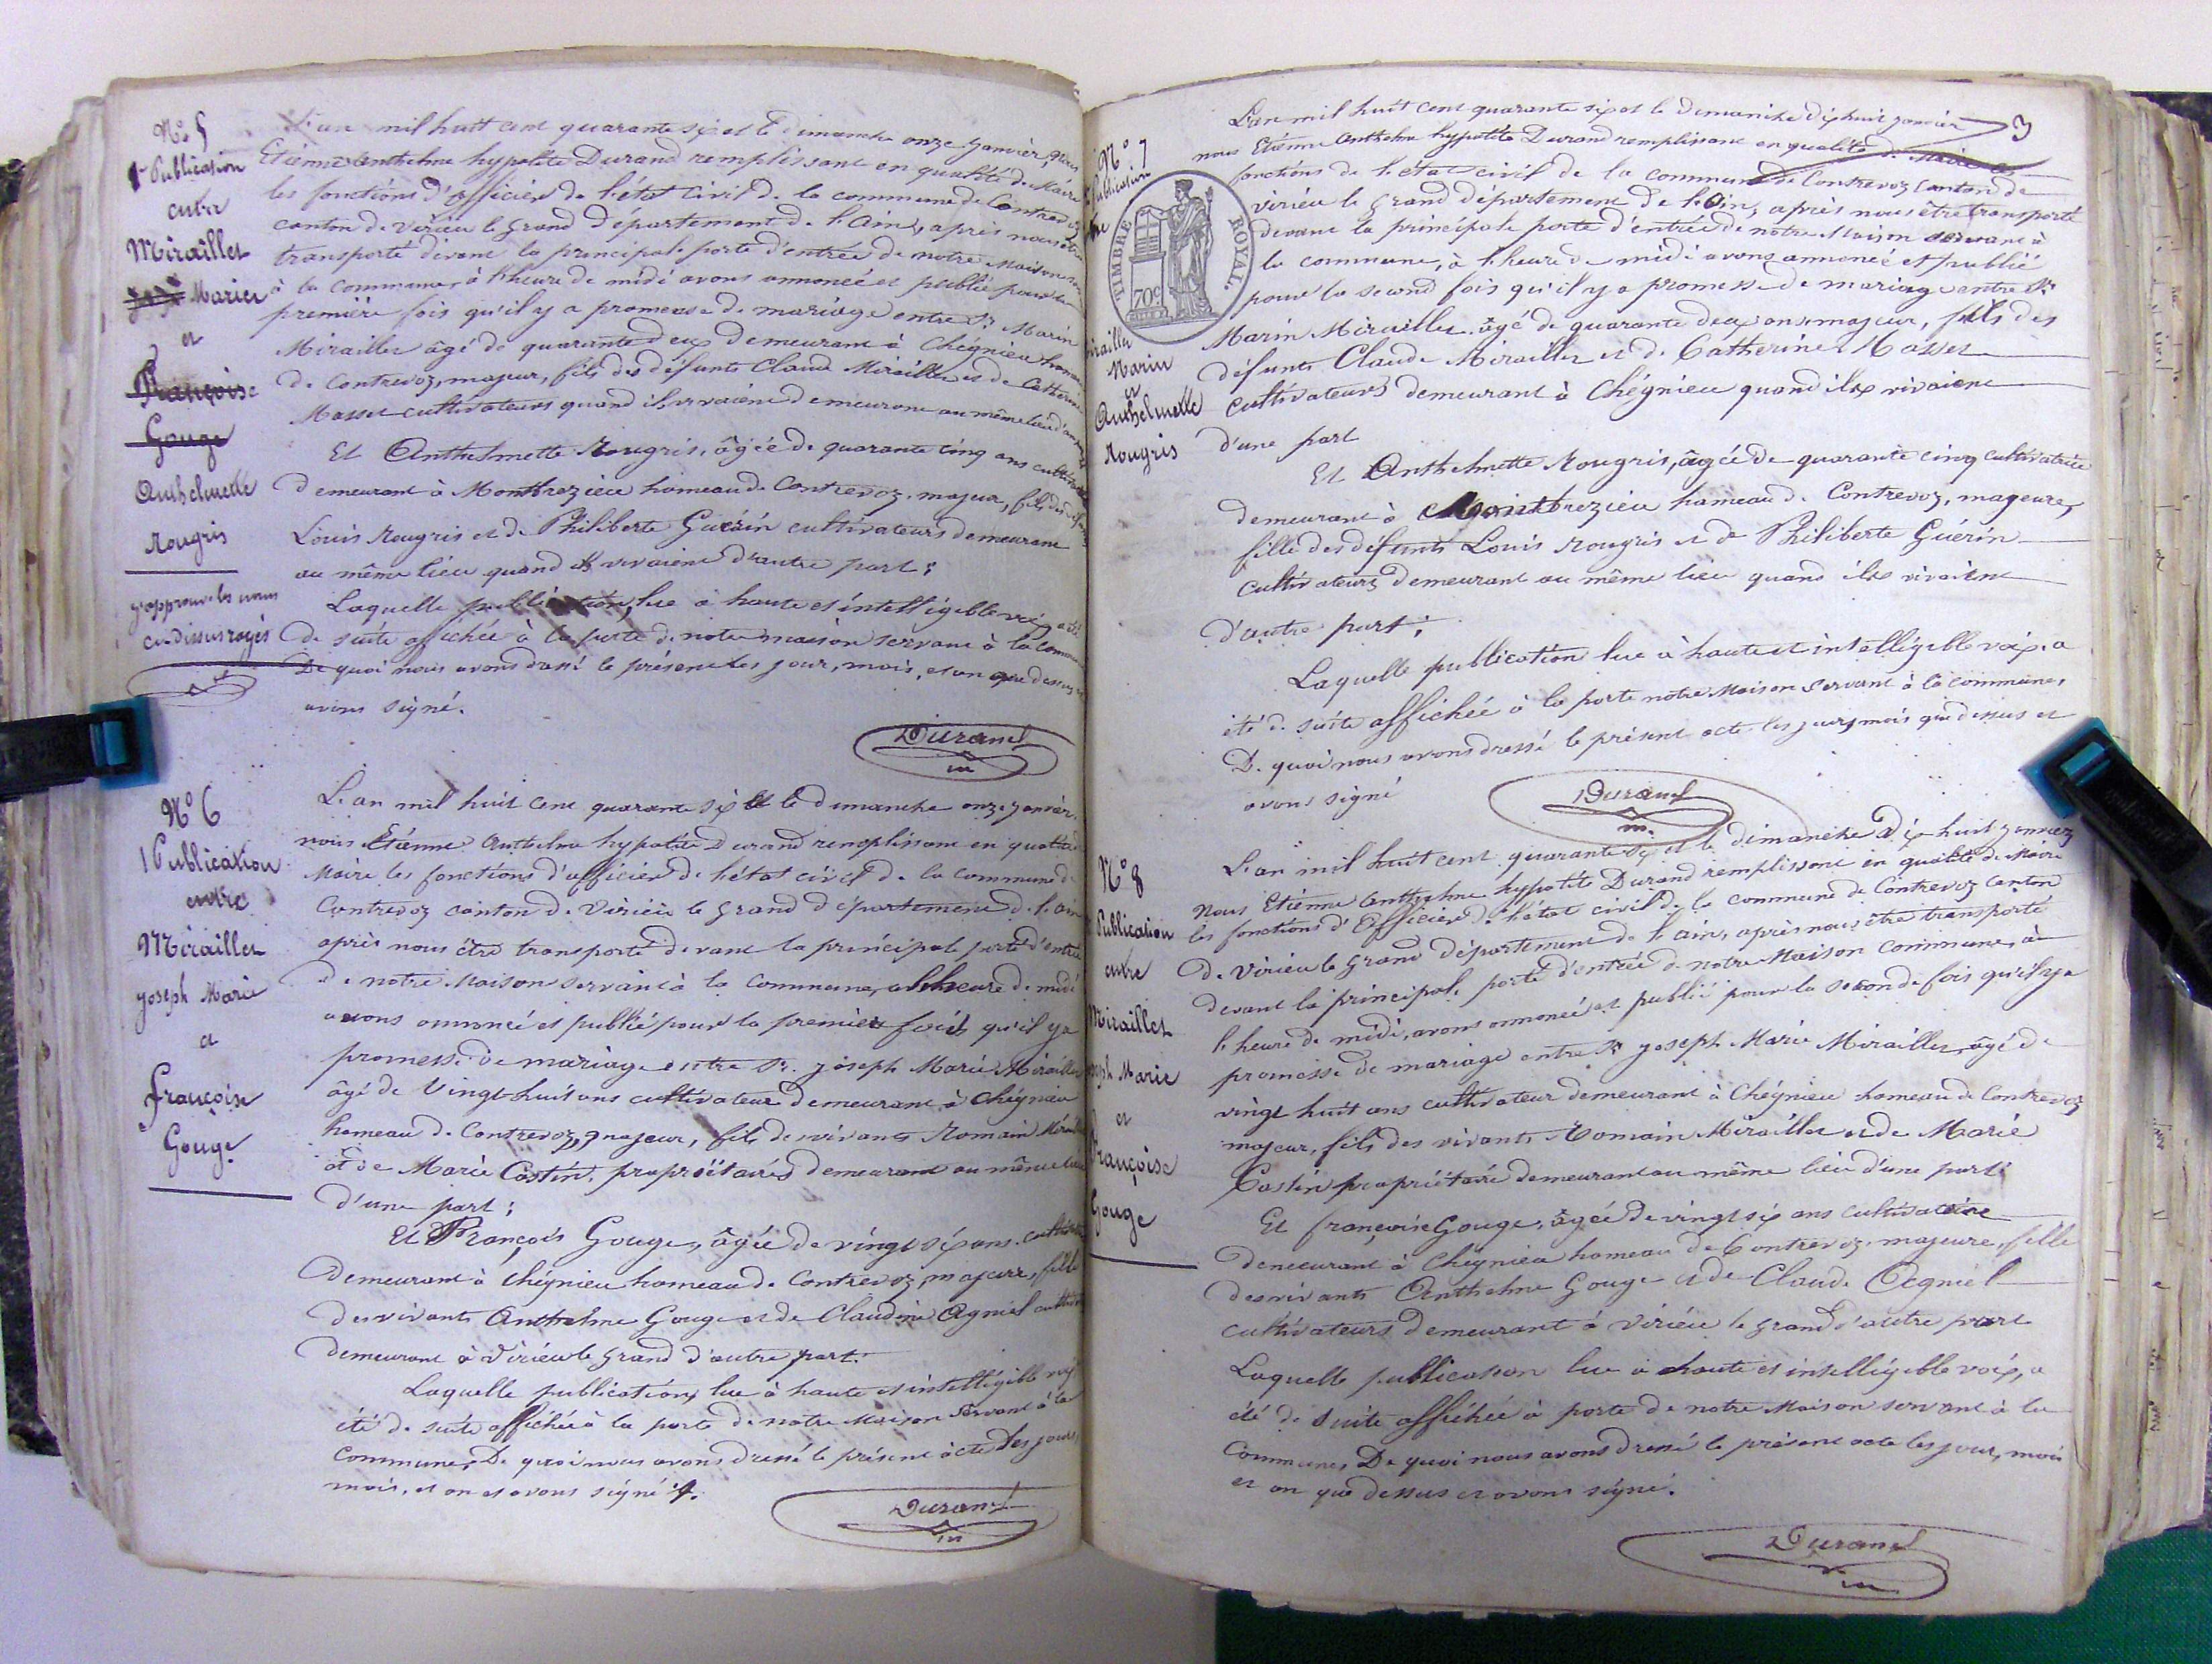 N° 5
1re Publication
entre
Miraillet
Marin
et
Françoise
Gouge
Anthelmette
Rougris
J'approuve les noms
ci-dessus rayés
L'an mil huit cent quarante six et le dimanche onze janvier, nous
Etienne Anthelme hypolite Durand remplissant en qualité de Maire
les fonctions d'officier de l'état civil de la commune de Contrevoz
canton de Virieu le grand Département de l'Ain, après nous être
transporté devant la principale porte d'entrée de notre Maison
à la commune, à l'heure de midi avons annoncé et publié pour la
première fois qu'il y a promesse de mariage entre Sr Marin
Miraillet âgé de quarante deux demeurant à Chégnieu hameau
de Contrevoz, majeur, fils des défunts Claude Miraillet et de Catherine
Masset cultivateurs quand ils vivaient demeurant au même lieu d'une part
Et Anthelmette Rougris, âgée de quarante cinq ans
demeurant à Montbrezieu hameau de Contrevoz, majeur, fils des défunts
Louis Rougris et de Philiberte Guérin cultivateurs demeurant
au même lieu quand ils vivaient d'autre part;
Laquelle publication, lue à haute et intelligible voix a été
de suite affichée à la porte de notre maison servant à la commune
De quoi nous avons dressé le présent les jour, mois, et an que dessus et
avons signé.
Durand
m
N° 6
1 Publication
entre
Miraillet
Joseph Marie
et
françoise
Gouge
L'an mil huit cent quarante six et le dimanche onze janvier
nous Etienne Anthelme hypolite Durand remplissant en qualité de
Maire les fonctions d'officier de l'état civil de la commune de
Contrevoz canton de Virieu le grand département de l'ain
après nous être transporté devant la principale porte d'entrée
de notre Maison servant à la commune, à l'heure de midi
avons annoncé et publié pour la premier fois qu'il y a
promesse de mariage entre Sr. Joseph Marie Miraillet
âgé de Vingt-huit ans cultivateur demeurant à Chégnieu
hameau de Contrevoz, majeur, fils des vivants Romain Miraillet
et de Marie Costin, propriétaires demeurant au même lieu
d'une part;
Et François Gouge, âgée de vingt six ans
demeurant à Chégnieu hameau de Contrevoz, majeure, fille
des vivants Anthelme Gouge et de Claudine Agniel
demeurant à Virieu le grand d'autre part.
Laquelle publication, lue à haute et intelligible voix
été de suite affichée à la porte de notre Maison servant à la
commune, De quoi nous avons dressé le présent acte les jours,
mois, et an et avons signé.
Durand
m
3
N° 7
Publication
TIMBRE ROYAL
70c
Miraillet
Marin
et
Anthelmette
Rougris
L'an mil huit cent quarante six et le dimanche dix huit janvier
nous Etienne Anthelme hypolite Durand remplissant en qualité de Maire les
fonctions de l'état civil de la commune de Contrevoz Canton de
Virieu le grand département de l'Ain, après nous être transporté
devant la principale porte d'entrée de notre Maison servant à
la commune, à l'heure de midi avons annoncé et publié
pour la second fois qu'il y a promesse de mariage entre Sr
Marin Miraillet âgé de quarante deux ans majeur, fils des
défunts Claude Miraillet et de Catherine Masset
cultivateurs demeurant à Chégnieu quand ils vivaient
d'une part
Et Anthelmette Rougris, âgée de quarante cinq cultivatrice
demeurant à Montbrezieu hameau de Contrevoz, mageure,
fille des défunts Louis Rougris et de Philiberte Guérin
cultivateurs demeurant au même lieu quand ils vivaient
d'autre part;
Laquelle publication lue à haute et intelligible voix, a
été de suite affichée à la porte notre Maison servant à la commune,
De quoi nous avons dressé le présent acte les jours mois que dessus et
avons signé
Durand
m.
N° 8
Publication
entre
Miraillet
Joseph Marie
et
Françoise
Gouge
L'an mil huit cent quarante six et le dimanche Dix huit janvier
Nous Etienne Anthelme hypolite Durand remplissant en qualité de Maire
les fonctions d'Officier de l'état civil de la commune de Contrevoz canton
de Virieu le grand département de l'ain, après nous être transporté
devant la principale porte d'entrée de notre Maison commune, à
l'heure de midi, avons annoncé et publié pour la seconde fois qu'il y a
promesse de mariage entre Sr Joseph Marie Miraillet, âgé de
vingt huit ans cultivateur demeurant à Chégnieu hameau de Contrevoz
majeur, fils des vivants Romain Miraillet et de Marie
Costin propriétaire demeurant au même lieu d'une part
Et françoise Gouge, âgée de vingt six ans cultivatrice
demeurant à Chegnieu hameau de Contrevoz, majeure, fille
des vivants Anthelme Gouge et de Claude Aegniel
cultivateurs demeurant à Virieu le grand d'autre part
Laquelle publication lue à haute et intelligible voix, a
été de suite affichée à porte de notre Maison servant à la
Commune, De quoi nous avons dressé le présent acte les jour, mois
et an que dessus et avons signé.
Durand
m